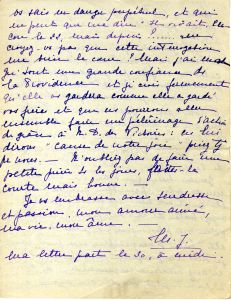 vs sais en danger perpétuel, et qui
ne peut que me dire : il vivait, En-
core le 22, mais depuis ? ...... ne
croyez vs pas que cette interrogation
me brise le cœur ! mais j'ai
toute une grande confiance ds
la Providence et je crois fermement
qu'elle vs gardera comme elle a gardé
vos frères et que ns pourrons
ensemble faire un pèlerinage d'action
de grâce à N. D. des Victoires : ns lui
dirons "Cause de notre joie" priez
pr nous. — N'oubliez pas de faire une
petite prière ts les jours,
courte mais bonne. —
Je vs embrasse avec tendresse
et passion, mon amour aimé,
ma vie, mon âme. —
ma lettre part le 30, à midi.